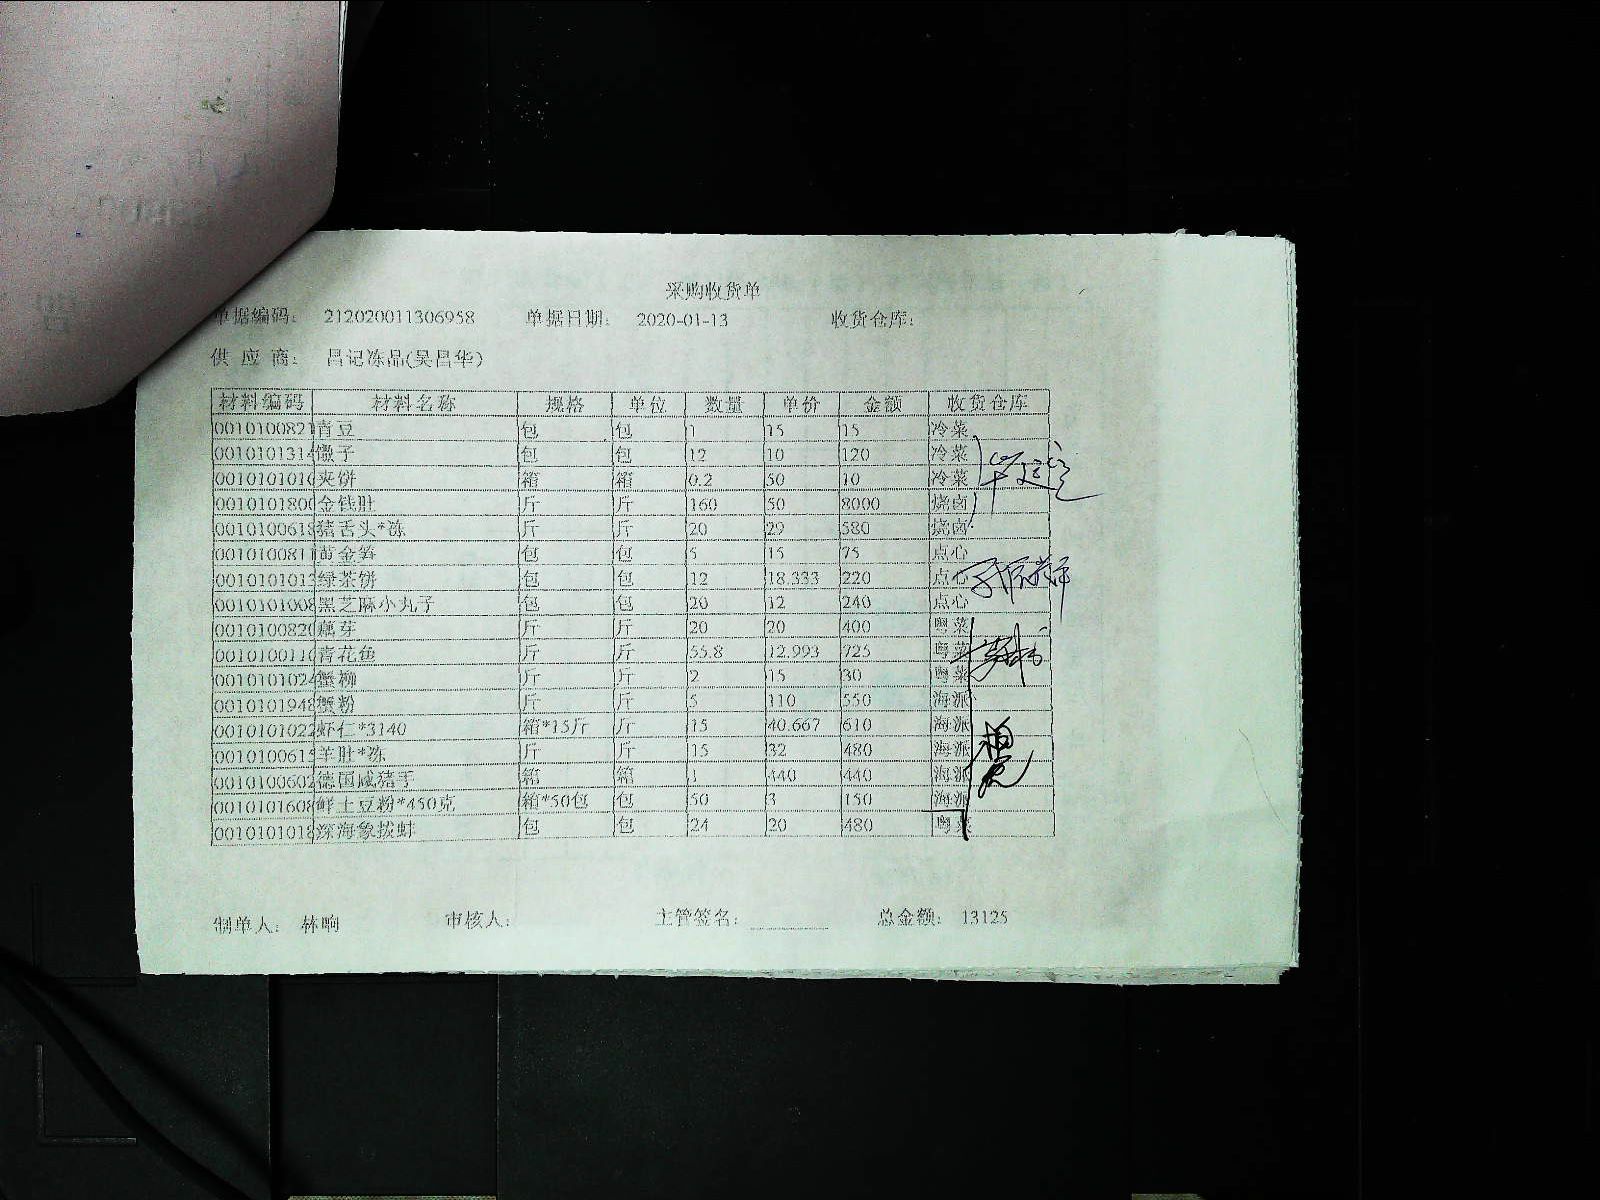 采购收货单
单据编码: 212020011306958 单据日期: 2020-01-13 收货仓库:
供 应 商: 昌记冻品(吴昌华)
材料编码 材料名称 规格 单位 数量 单价 金额 收货仓库
0010100821 青豆 包 包 1 15 15 冷菜
0010101314 馓子 包 包 12 10 120 冷菜
001010101 夹饼 箱 箱 0.2 50 10 冷菜
001010180 金钱肚 斤 斤 160 50 8000 烧卤
0010100618 猪舌头*冻 斤 斤 20 29 580 烧卤
001010081 黄金笋 包 包 5 15 75 点心
0010101013 绿茶饼 包 包 12 18.333 220 点心
0010101008 黑芝麻小丸子 包 包 20 12 240 点心
001010082 藕芽 斤 斤 20 20 400 粤菜
001010011 青花鱼 斤 斤 55.8 12.993 725 粤菜
0010101024 蟹柳 斤 斤 2 15 30 粤菜
0010101948 蟹粉 斤 斤 5 110 550 海派
0010101022 虾仁*3140 箱*15斤 斤 15 40.667 610 海派
0010100615 羊肚*冻 斤 斤 15 32 480 海派
0010100602 德国咸猪手 箱 箱 1 440 440 海派
0010101608 鲜土豆粉*450克 箱*50包 包 50 3 150 海派
0010101018 深海象拔蚌 包 包 24 20 480 粤菜
制单人: 林晌 审核人: 主管签名: 总金额: 13125